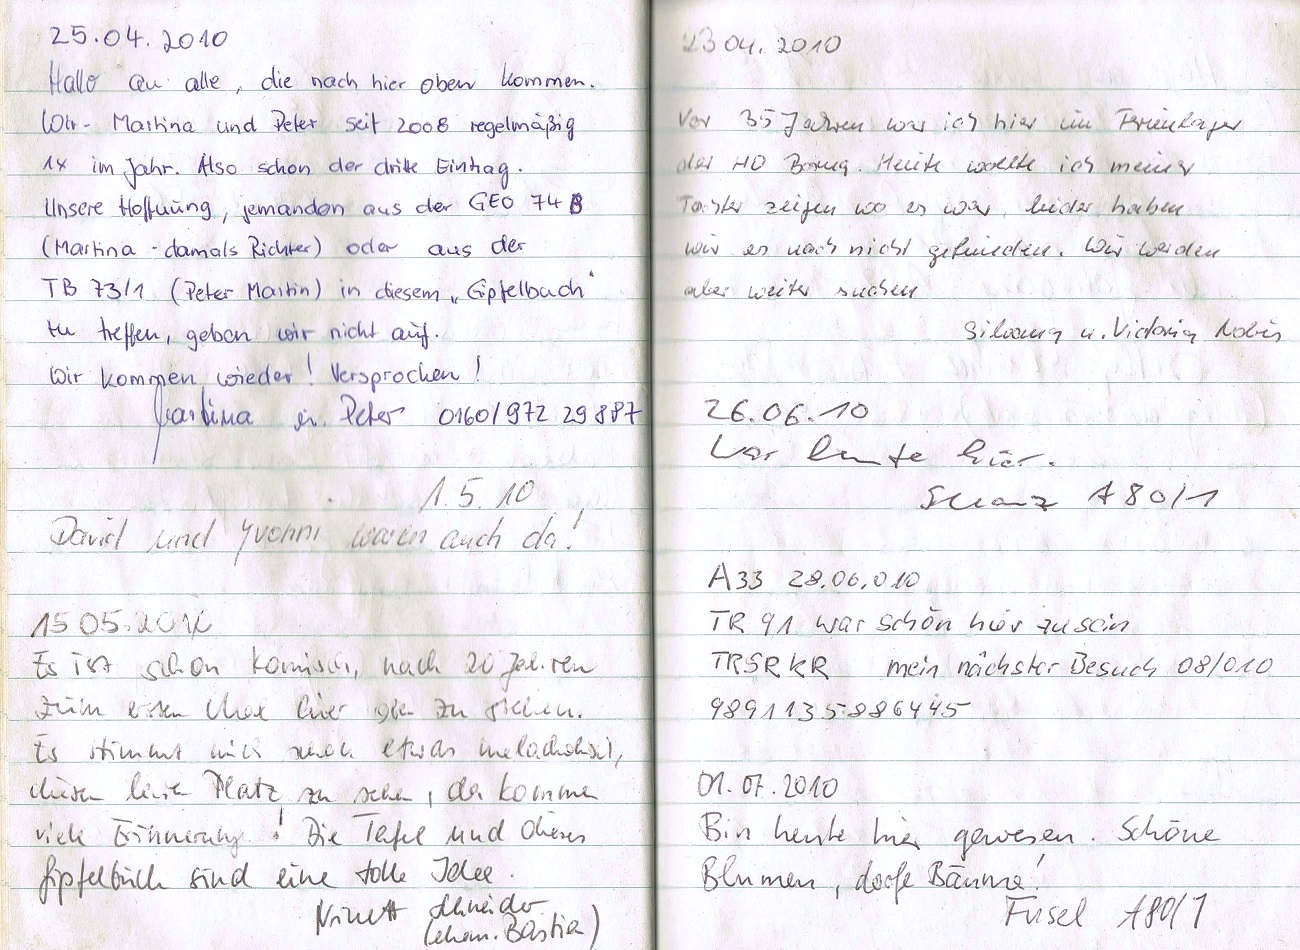 25.04.2010
Hallo an alle, die nach hier oben kommen.
Wir - Martina und Peter seit 2008 regelmäßig
1x im Jahr. Also schon der dritte Eintrag.
Unsere Hoffnung, jemanden aus der GEO 74 B
(Martina - damals Richter) oder aus der
TB 73/1 (Peter Martin) in diesem „Gipfelbuch"
zu treffen, geben wir nicht auf.
Wir kommen wieder! Versprochen!
Martina u. Peter 0160/972 29 887
1.5.10
David und Yvonni waren auch da!
15 05.2010
Es ist schon komisch, nach 20 Jahren
zum ersten Mal hier oben zu stehen.
Es stimmt mich auch etwas melancholisch,
diesen leeren Platz zu sehen, da kommen
viele Erinnerung! Die Tafel und dieses
Gipfelbuch sind eine tolle Idee.
Schneider
(ehem. Bastian)
23 04. 2010
Vor 35 Jahren war ich hier im Ferienlager
der HO Borna. Heute wollte ich meiner
Tochter zeigen wo es war, leider haben
wir es noch nicht gefunden. Wir werden
aber weiter suchen
Silvana u. Victoria
26.06.10
War heute hier.
A 80/1
A33 28.06.010
TR 91 war schön hier zu sein
TRSRKR mein nächster Besuch 08/010
9891135886445
01.07.2010
Bin heute hier gewesen. Schöne
Blumen, doofe Bäume!
Fusel A80/1